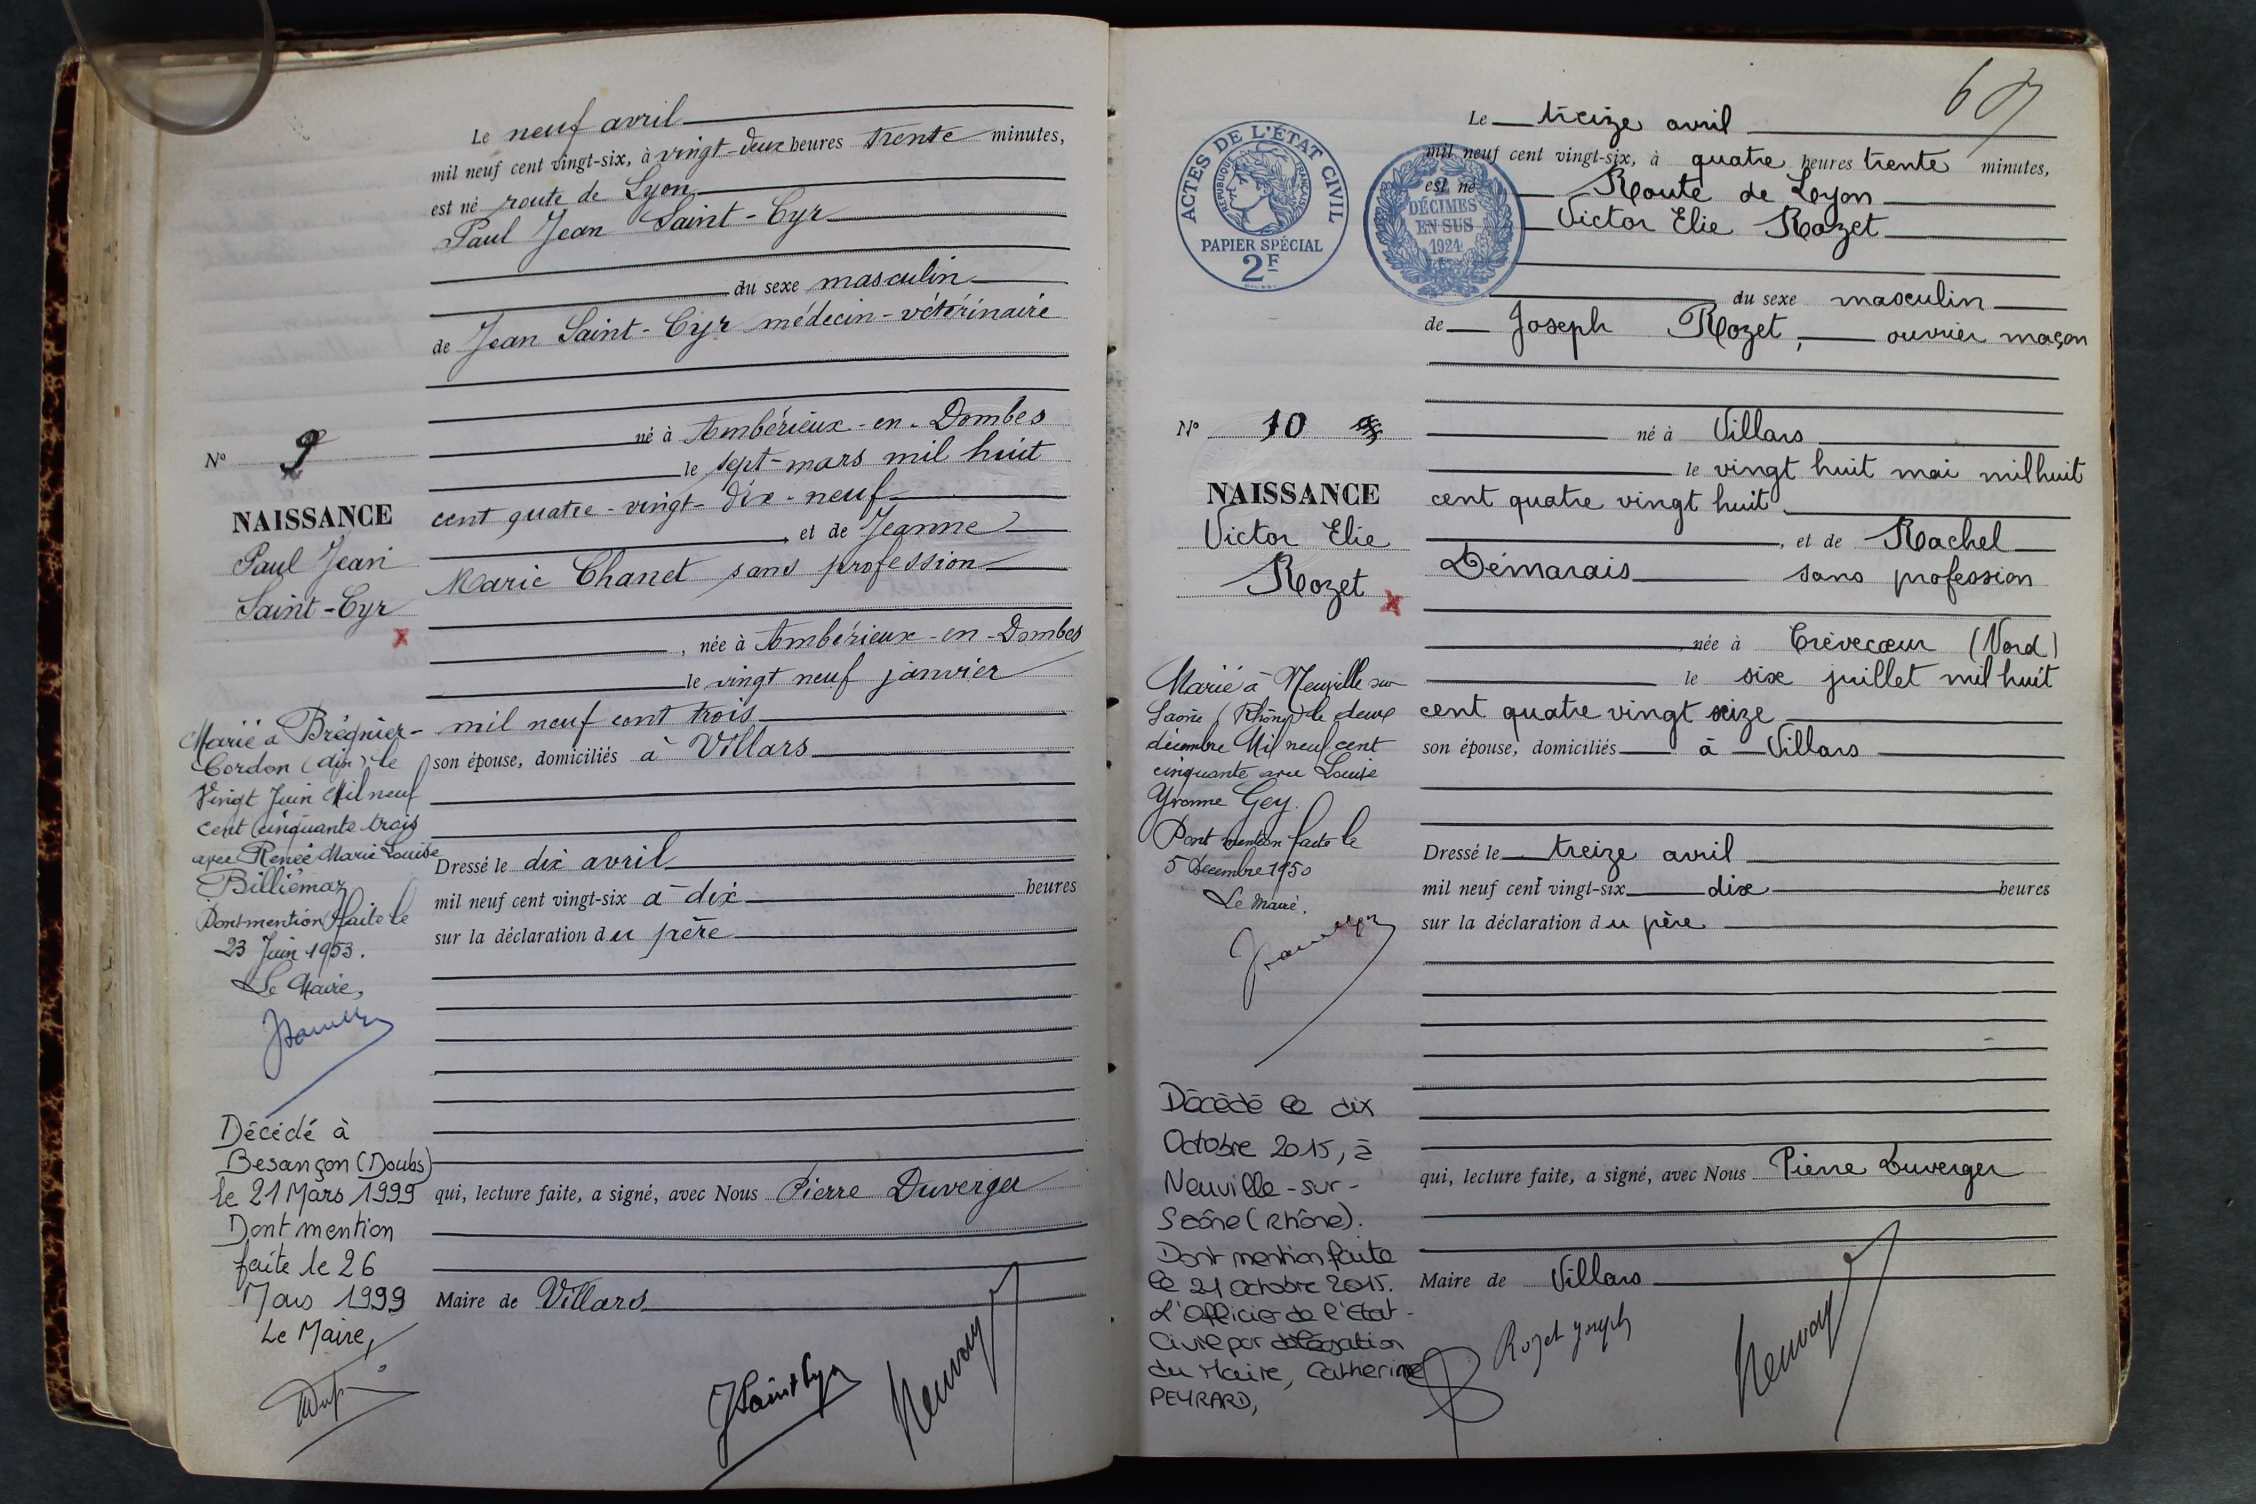 Le neuf avril
mil neuf cent vingt-six, à vingt-deux heures trente minutes,
est né route de Lyon
Paul Jean Saint-Cyr
du sexe masculin
de Jean Saint-Cyr médecin-vétérinaire
né à Ambérieux-en-Dombes
le sept mars mil huit
cent quatre-vingt-dix-neuf
, et de Jeanne
Marie Chanet sans profession
, née à Ambérieux-en-Dombes
le vingt neuf janvier
mil neuf cent trois
son épouse, domiciliés à Villars
Dressé le dix avril
mil neuf cent vingt-six à dix heures
sur la déclaration du père
qui, lecture faite, a signé, avec Nous Pierre Duverger
Maire de Villars
JSaintCyr
Nº 9
NAISSANCE
Paul Jean
Saint-Cyr
x
Marié à Brégnier-
Cordon (Ain) le
Vingt Juin Mil neuf
cent cinquante trois
avec Renée Marie Louise
Billiémaz
Dont mention faite le
23 Juin 1953.
Le Maire,
Décédé à
Besançon (Doubs)
le 21 Mars 1999
Dont mention
faite le 26
Mars 1999
Le Maire,
Le treize avril
mil neuf cent vingt-six, à quatre heures trente minutes,
est né Route de Lyon
Victor Elie Rozet
du sexe masculin
de Joseph Rozet, ouvrier maçon
né à Villars
le vingt huit mai mil huit
cent quatre vingt huit
, et de Rachel
Démarais sans profession
née à Crèvecœur (Nord)
le six juillet mil huit
cent quatre vingt seize
son épouse, domiciliés à Villars
Dressé le treize avril
mil neuf cent vingt-six dix heures
sur la déclaration du père
qui, lecture faite, a signé, avec Nous Pierre Duverger
Maire de Villars
Rozet Joseph
ACTES DE L'ÉTAT CIVIL
RÉPUBLIQUE FRANÇAISE
PAPIER SPÉCIAL
2F
DÉCIMES
EN SUS
1924
Nº 10
NAISSANCE
Victor Elie
Rozet
x
Marié à Neuville sur
Saône (Rhône) le deux
décembre Mil neuf cent
cinquante avec Louise
Yvonne Gey.
Dont mention faite le
5 Décembre 1950
Le Maire.
Décédé le dix
Octobre 2015, à
Neuville-sur-
Saône (Rhône).
Dont mention faite
le 21 Octobre 2015.
L'Officier de l'Etat-
Civil par délégation
du Maire, Catherine
PEYRARD,